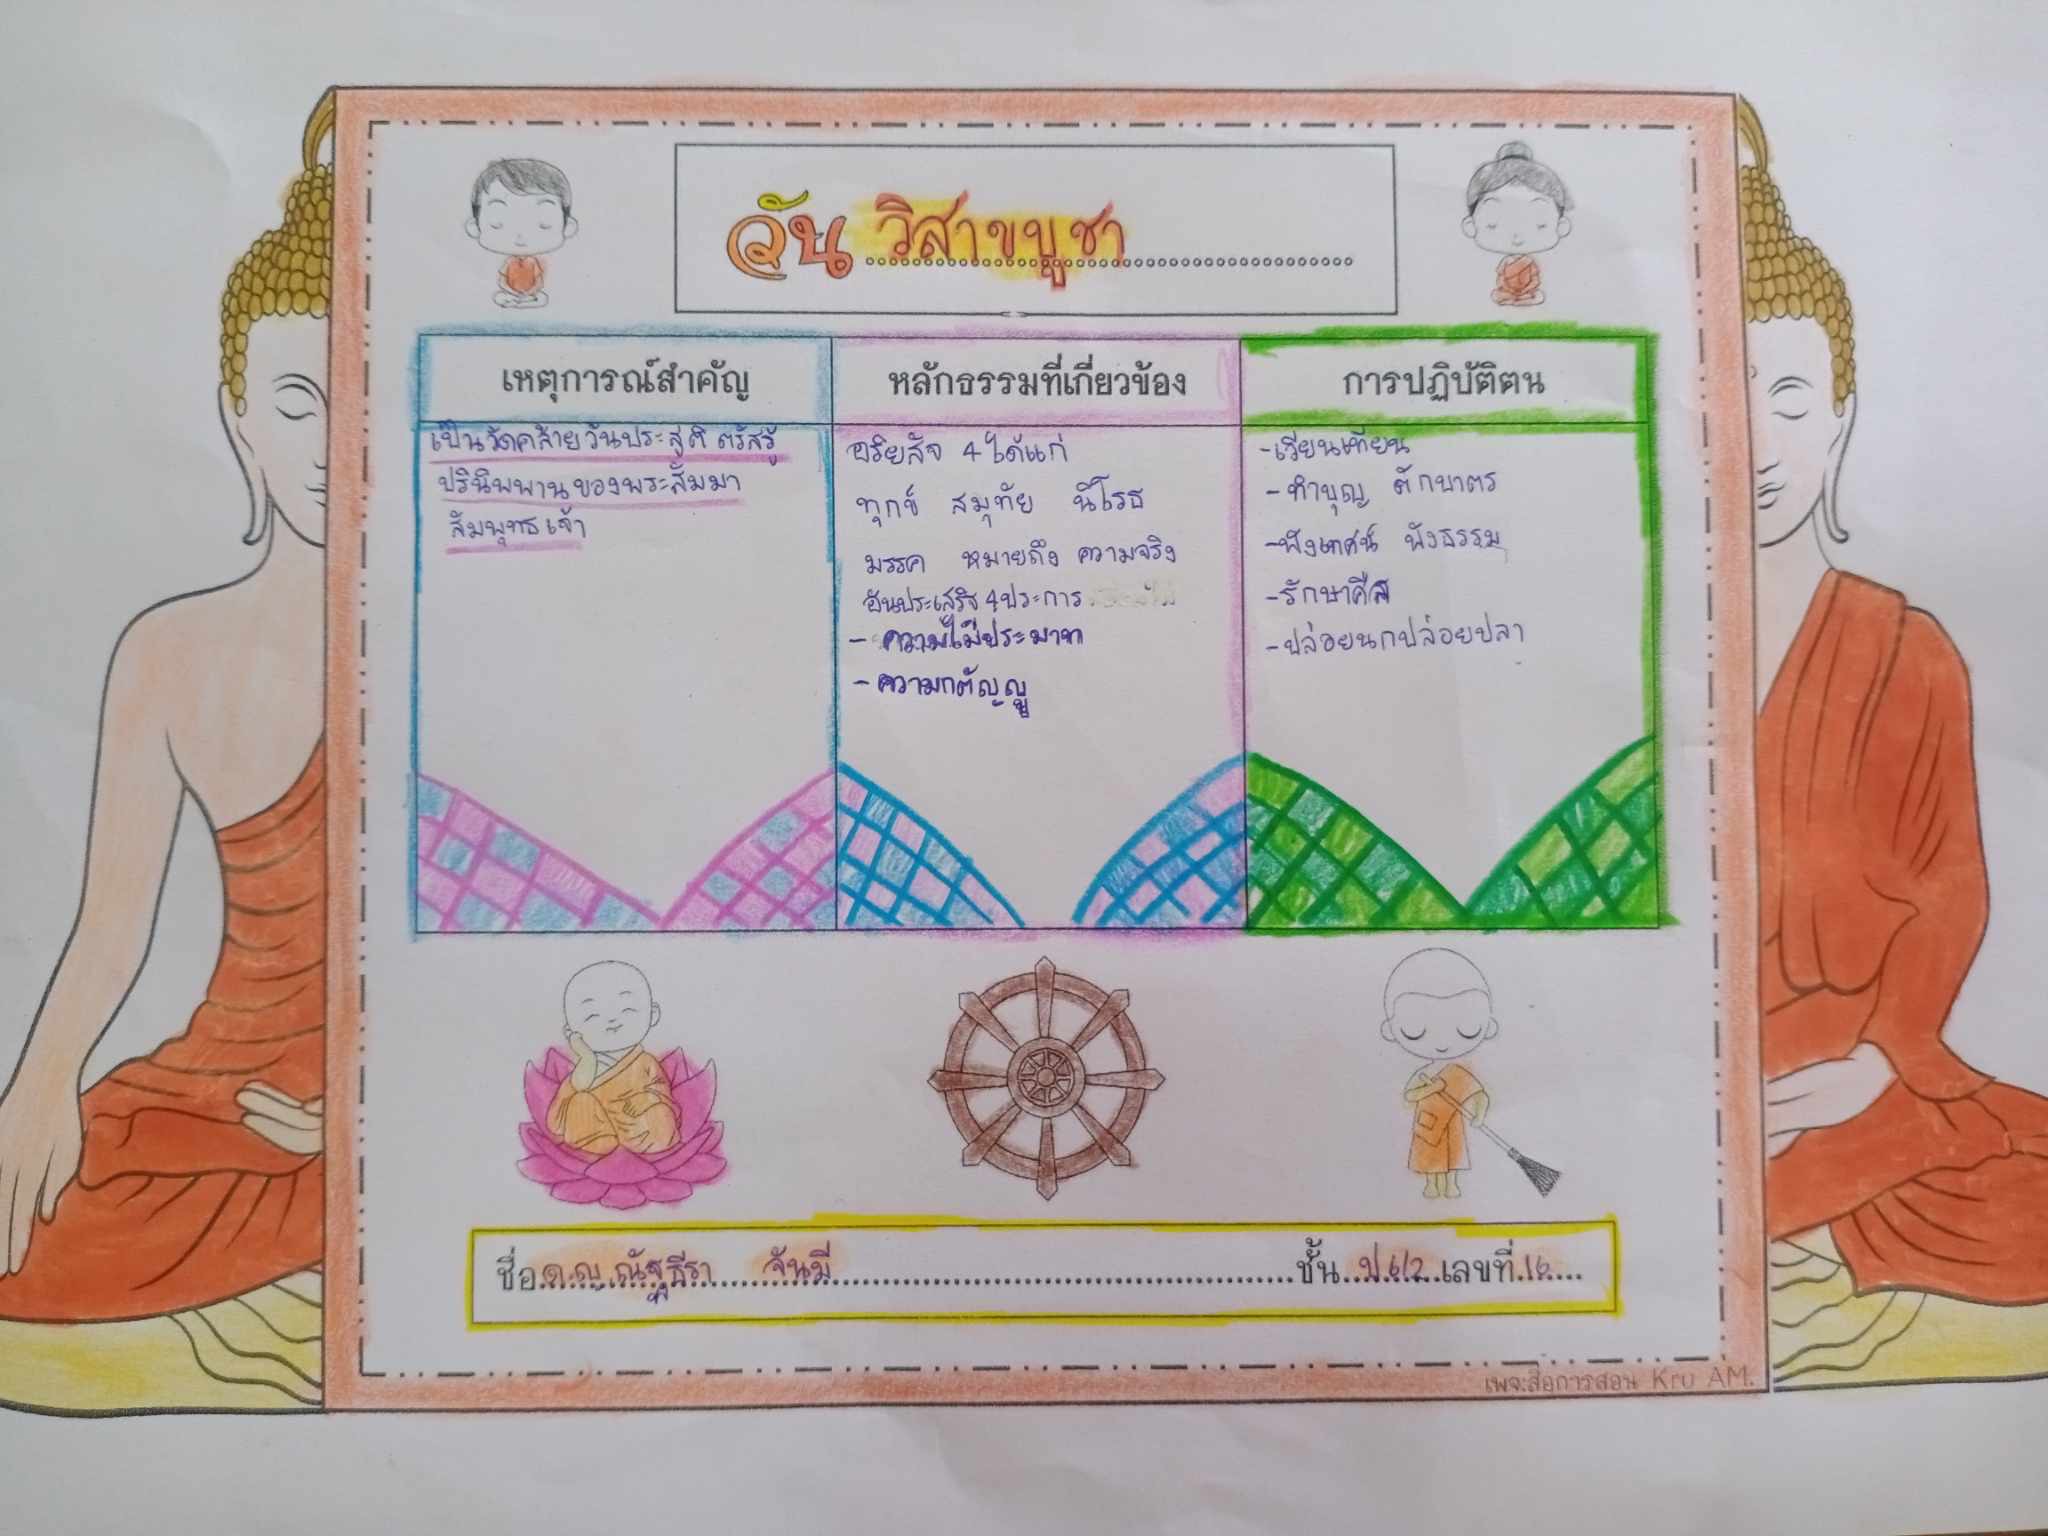 วันวิสาขบูชา
เหตุการณ์สำคัญ
เป็นวัดคล้ายวันประสูติ ตรัสรู้
ปรินิพพานของพระสัมมา
สัมพุทธเจ้า
หลักธรรมที่เกี่ยวข้อง
อริยสัจ 4 ได้แก่
ทุกข์ สมุทัย นิโรธ
มรรค หมายถึง ความจริง
อันประเสริฐ 4 ประการ
- ความไม่ประมาท
- ความกตัญญู
การปฏิบัติตน
-เวียนเทียน
- ทำบุญ ตักบาตร
-ฟังเทศน์ ฟังธรรม
-รักษาศีล
-ปล่อยนกปล่อยปลา
ชื่อ ด.ญ. ณัฐธีรา จันมี ชั้น ป.6/2 เลขที่ 16
เพจ:สื่อการสอน Kru AM.